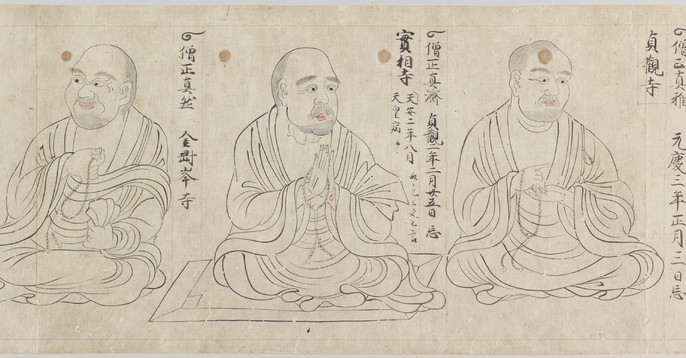 僧正真雅 元慶三年正月三日忌
貞觀寺
僧正真濟 貞觀二年二月廿五日忌
實相寺
天安二年八月
天皇病
僧正真然 金剛峯寺